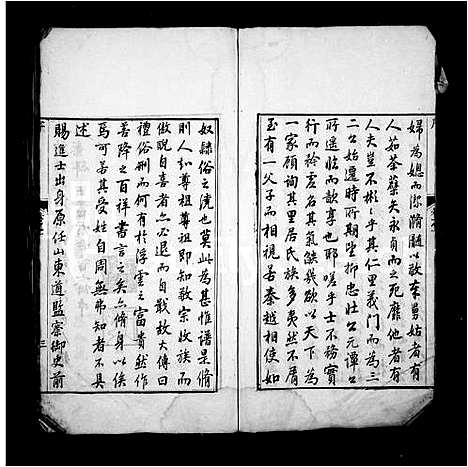 婦為媳而滌髓以敬事舅姑者有
人茹荼蘗矢永貞而之死靡他者有
人夫豈不彬彬乎其仁里義門而為三
二公始遷時所期望抑忠壯公元譚公
所遙臨而歆享也耶嗟乎士不務實
行而矜虛名其氣然幾欲以天下為
一家顧詢其里居氏族多夷然不屑
至有一父子而相視若秦越相使如
奴隸俗之澆也莫此為甚惟譜是脩
則人知尊祖尊祖即知敬宗收族而
傲睨喜者必退而自戢故大傳曰
禮俗刑而何有於浮雲之富貴然作
善降之百祥書言之矣脩身以俟
焉可若其受姓自周無弗知者不具
述
賜進士出身原任山東道監察御史前